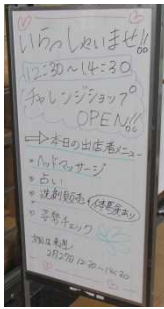 いらっしゃいませ!!
12:30~14:30
チャレンジショップ
OPEN!!
⇒本日の出店者メニュー
・ヘッドマッサージ
・占い
・洗剤販売
・姿勢チェック
2月27日 12:30~14:30